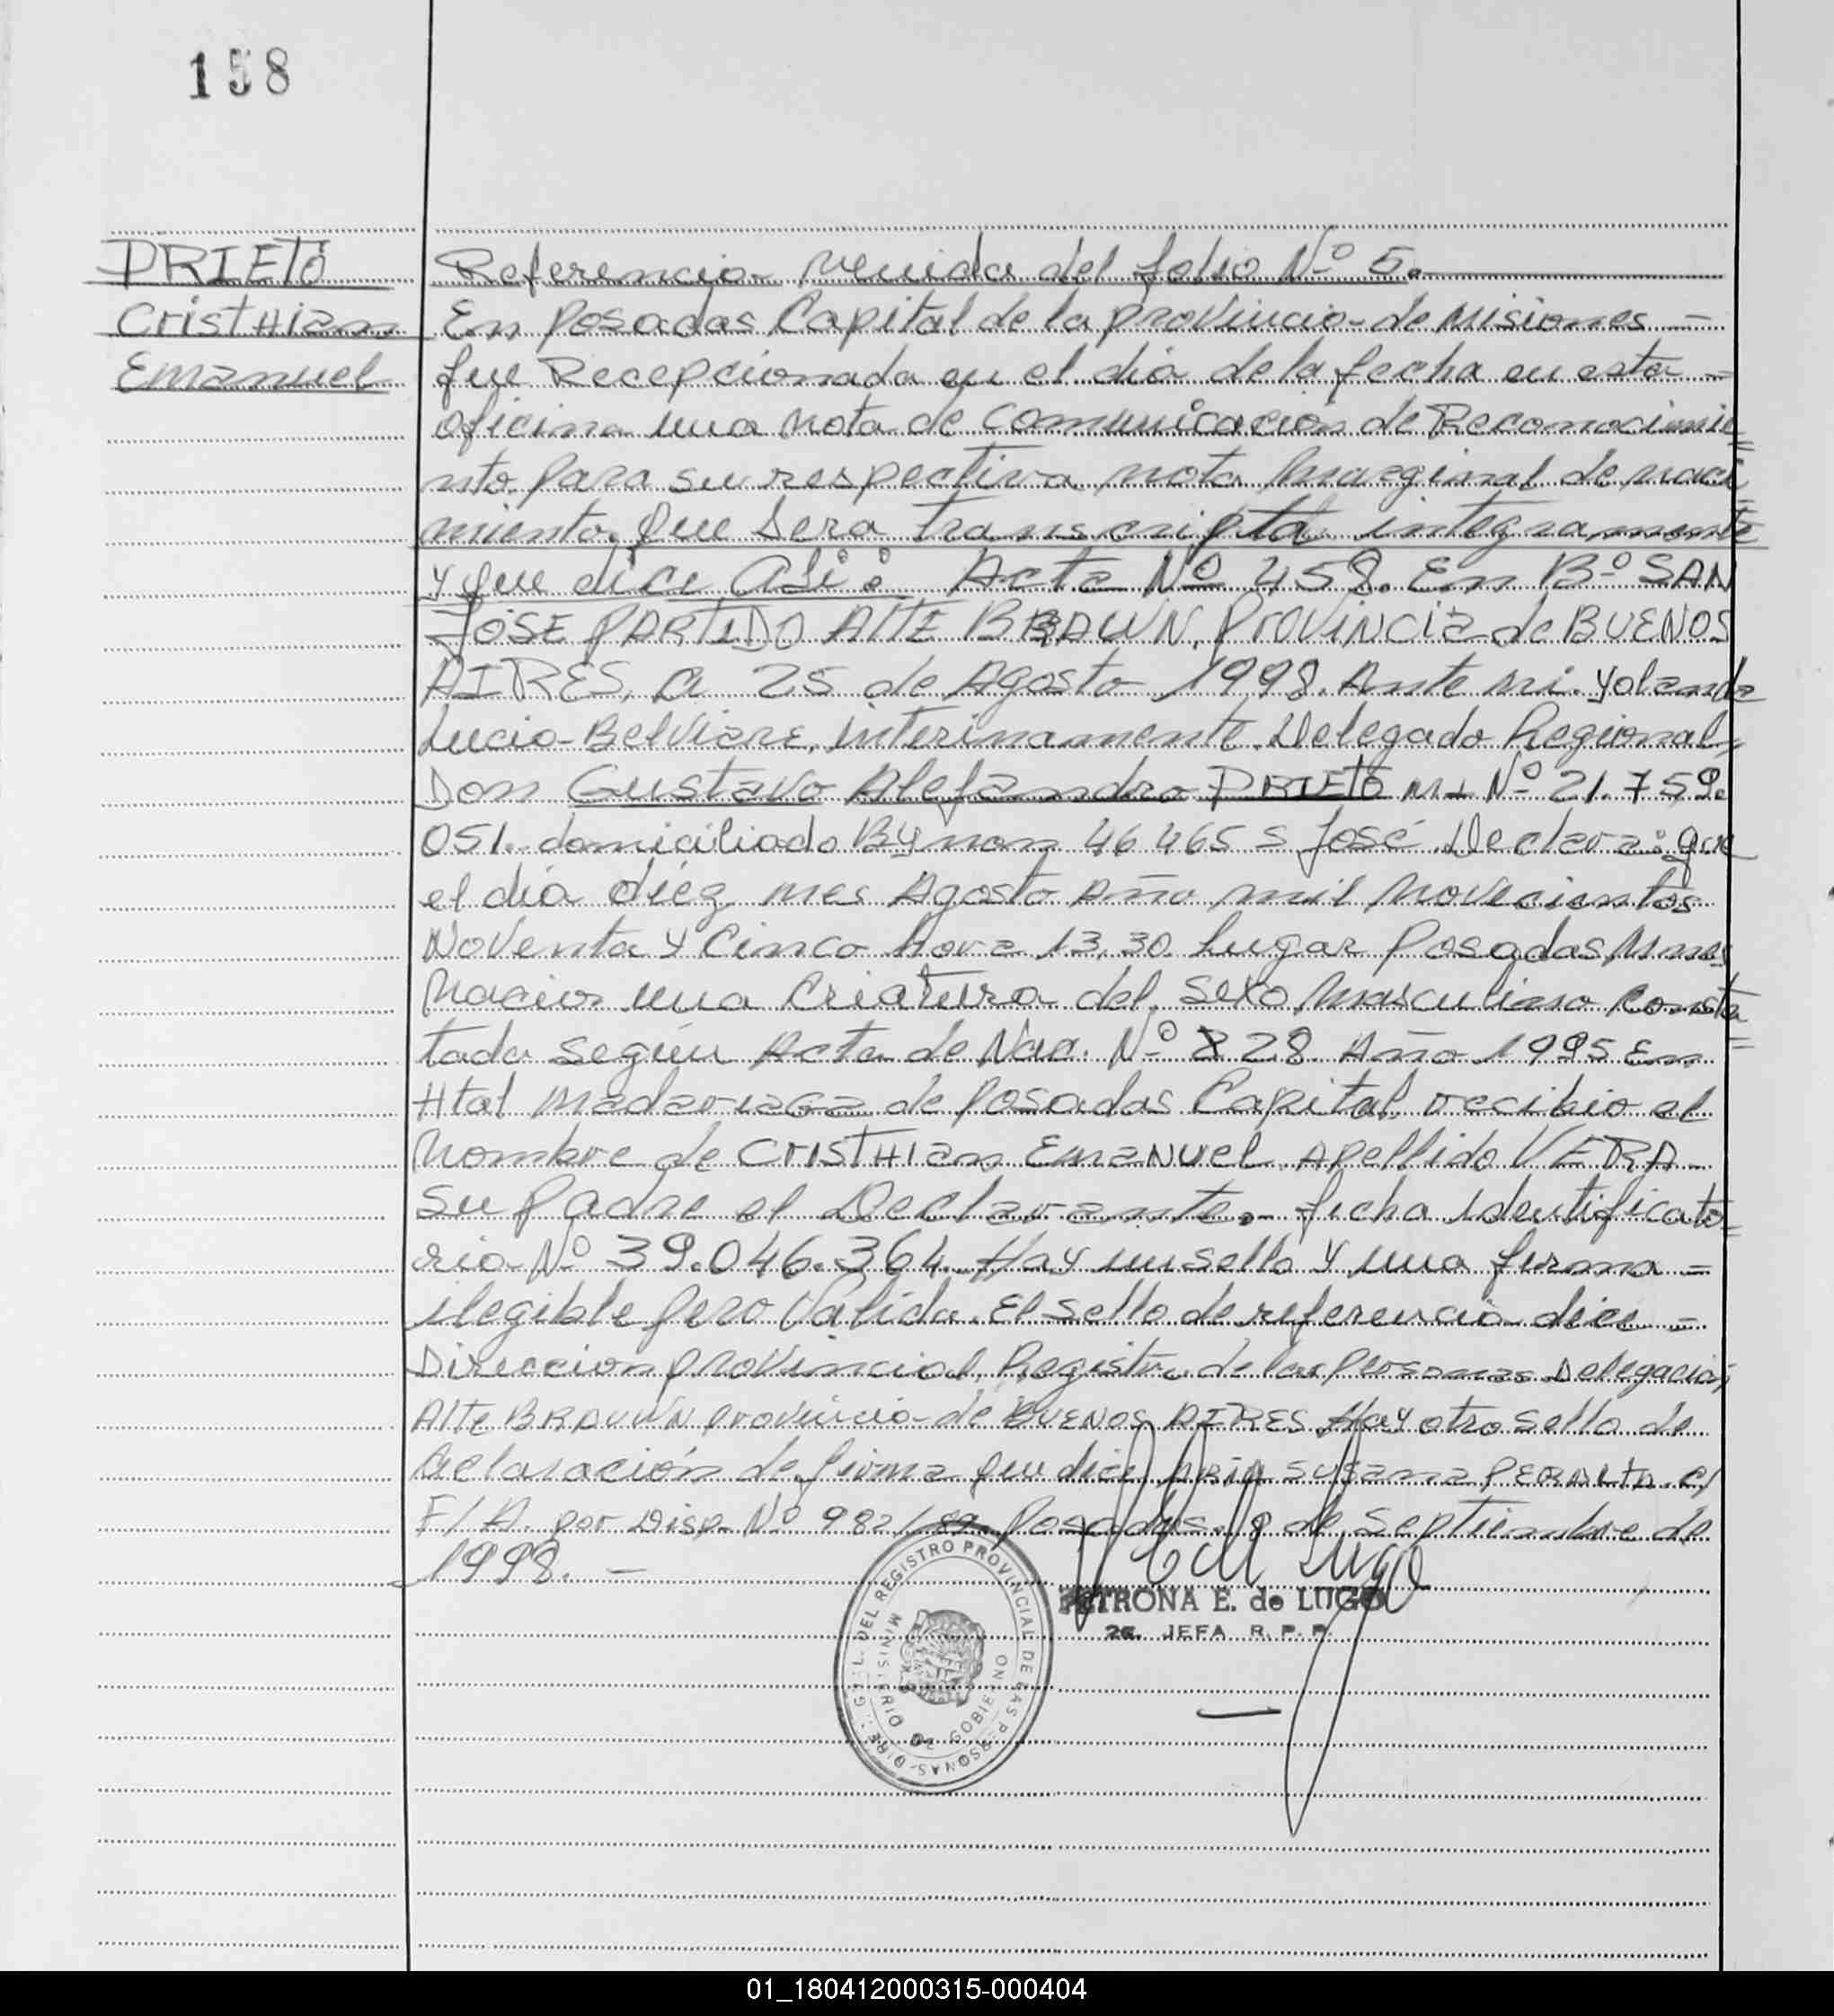 158
PRIETO
Cristhian
Emanuel
Referencia venida del folio Nº 5.
En Posadas Capital de la provincia de Misiones -
fue Recepcionada en el día de la fecha en esta =
oficina una nota de comunicación de Reconocimie=
nto para su respectiva nota marginal de naci=
miento, que sera transcripta integramente
y que dice asi: Acta Nº 458. En Bº SAN
JOSE PARTIDO Alte BRAWN, Provincia de BUENOS
AIRES, a 25 de Agosto 1998. Ante mi. Yolanda
Lucia Belviare, interinamente Delegado Regional,
Don Gustavo Alejandro PRIETO MI Nº 21.759.
051. domiciliado Bynon 46 465 S José Declara: que
el día diez mes Agosto Año mil novecientos
Noventa y Cinco hora 13,30. Lugar Posadas Mnes
Nacio una Criatura del sexo masculino consta=
tada según Acta de Nac. Nº 828 Año 1995 En
Htal Madariaga de Posadas Capital, recibio el
Nombre de CRISTHIAN EmaNUel Apellido VERA
su Padre el Declarante.- ficha identificato=
ria Nº 39.046.364. Hay un sello y una firma =
ilegible pero Válida. El sello de referencia dice =
Direccion provincial, Registro de las Personas Delegacion
Alte BRAUWN provincia de BUENOS AIRES Hay otro sello de
aclaración de firma que dice Susana PERALTA. C/
F/A. por Disp. Nº 982/89 Posadas, 9 de Septiembre de
1998. -
PETRONA E. de LUGO
2a. JEFA R. P. P.
DIRE. GRAL. DEL REGISTRO PROVINCIAL DE LAS PERSONAS
MINISTERIO DE GOBIERNO
01_180412000315-000404